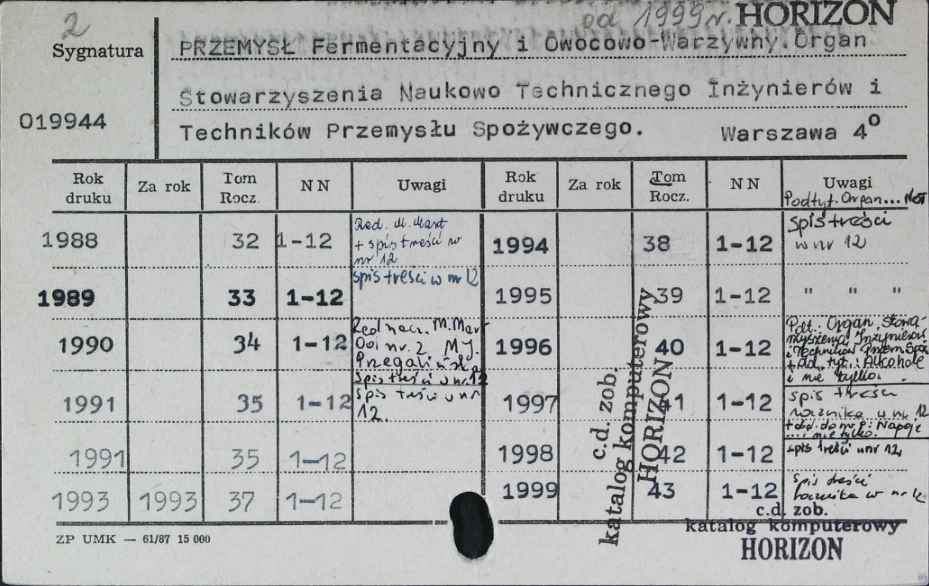 2
od 1999 r. HORIZON
Sygnatura
PRZEMYSŁ Fermentacyjny i Owocowo-Warzywny.Organ
Stowarzyszenia Naukowo Technicznego Inżynierów i
019944
Techników Przemysłu Spożywczego. Warszawa 4°
Rok druku Za rok Tom Rocz. NN Uwagi Rok druku Za rok Tom Rocz. NN Uwagi
Podtyt. Organ...
1988 32 1-12 Red. M.
+ spis treści w
nr 12
1994 38 1-12 spis treści
w nr 12
1989 33 1-12 spis treści w nr 12
1995 39 1-12 " " "
1990 34 1-12 Red. nacz. M.
Od nr. 2 M J.
spis treści w nr. 12
1996 40 1-12 Pdt. Organ
Inżynierów
i Techników Przem. Spoż.
+ dod. tyt.: Alkohole
i nie tylko.
1991 35 1-12 spis treści w nr
12
1997 41 1-12 spis treści
rocznika w nr 12
+ dod. do nr 9: Napoje
... i nie tylko.
1991 35 1-12
1998 42 1-12 spis treści w nr 12
1993 1993 37 1-12
1999 43 1-12 spis treści
rocznika w nr 12
c.d. zob.
katalog komputerowy
HORIZON
c.d. zob.
katalog komputerowy
HORIZON
ZP UMK — 61/87 15 000